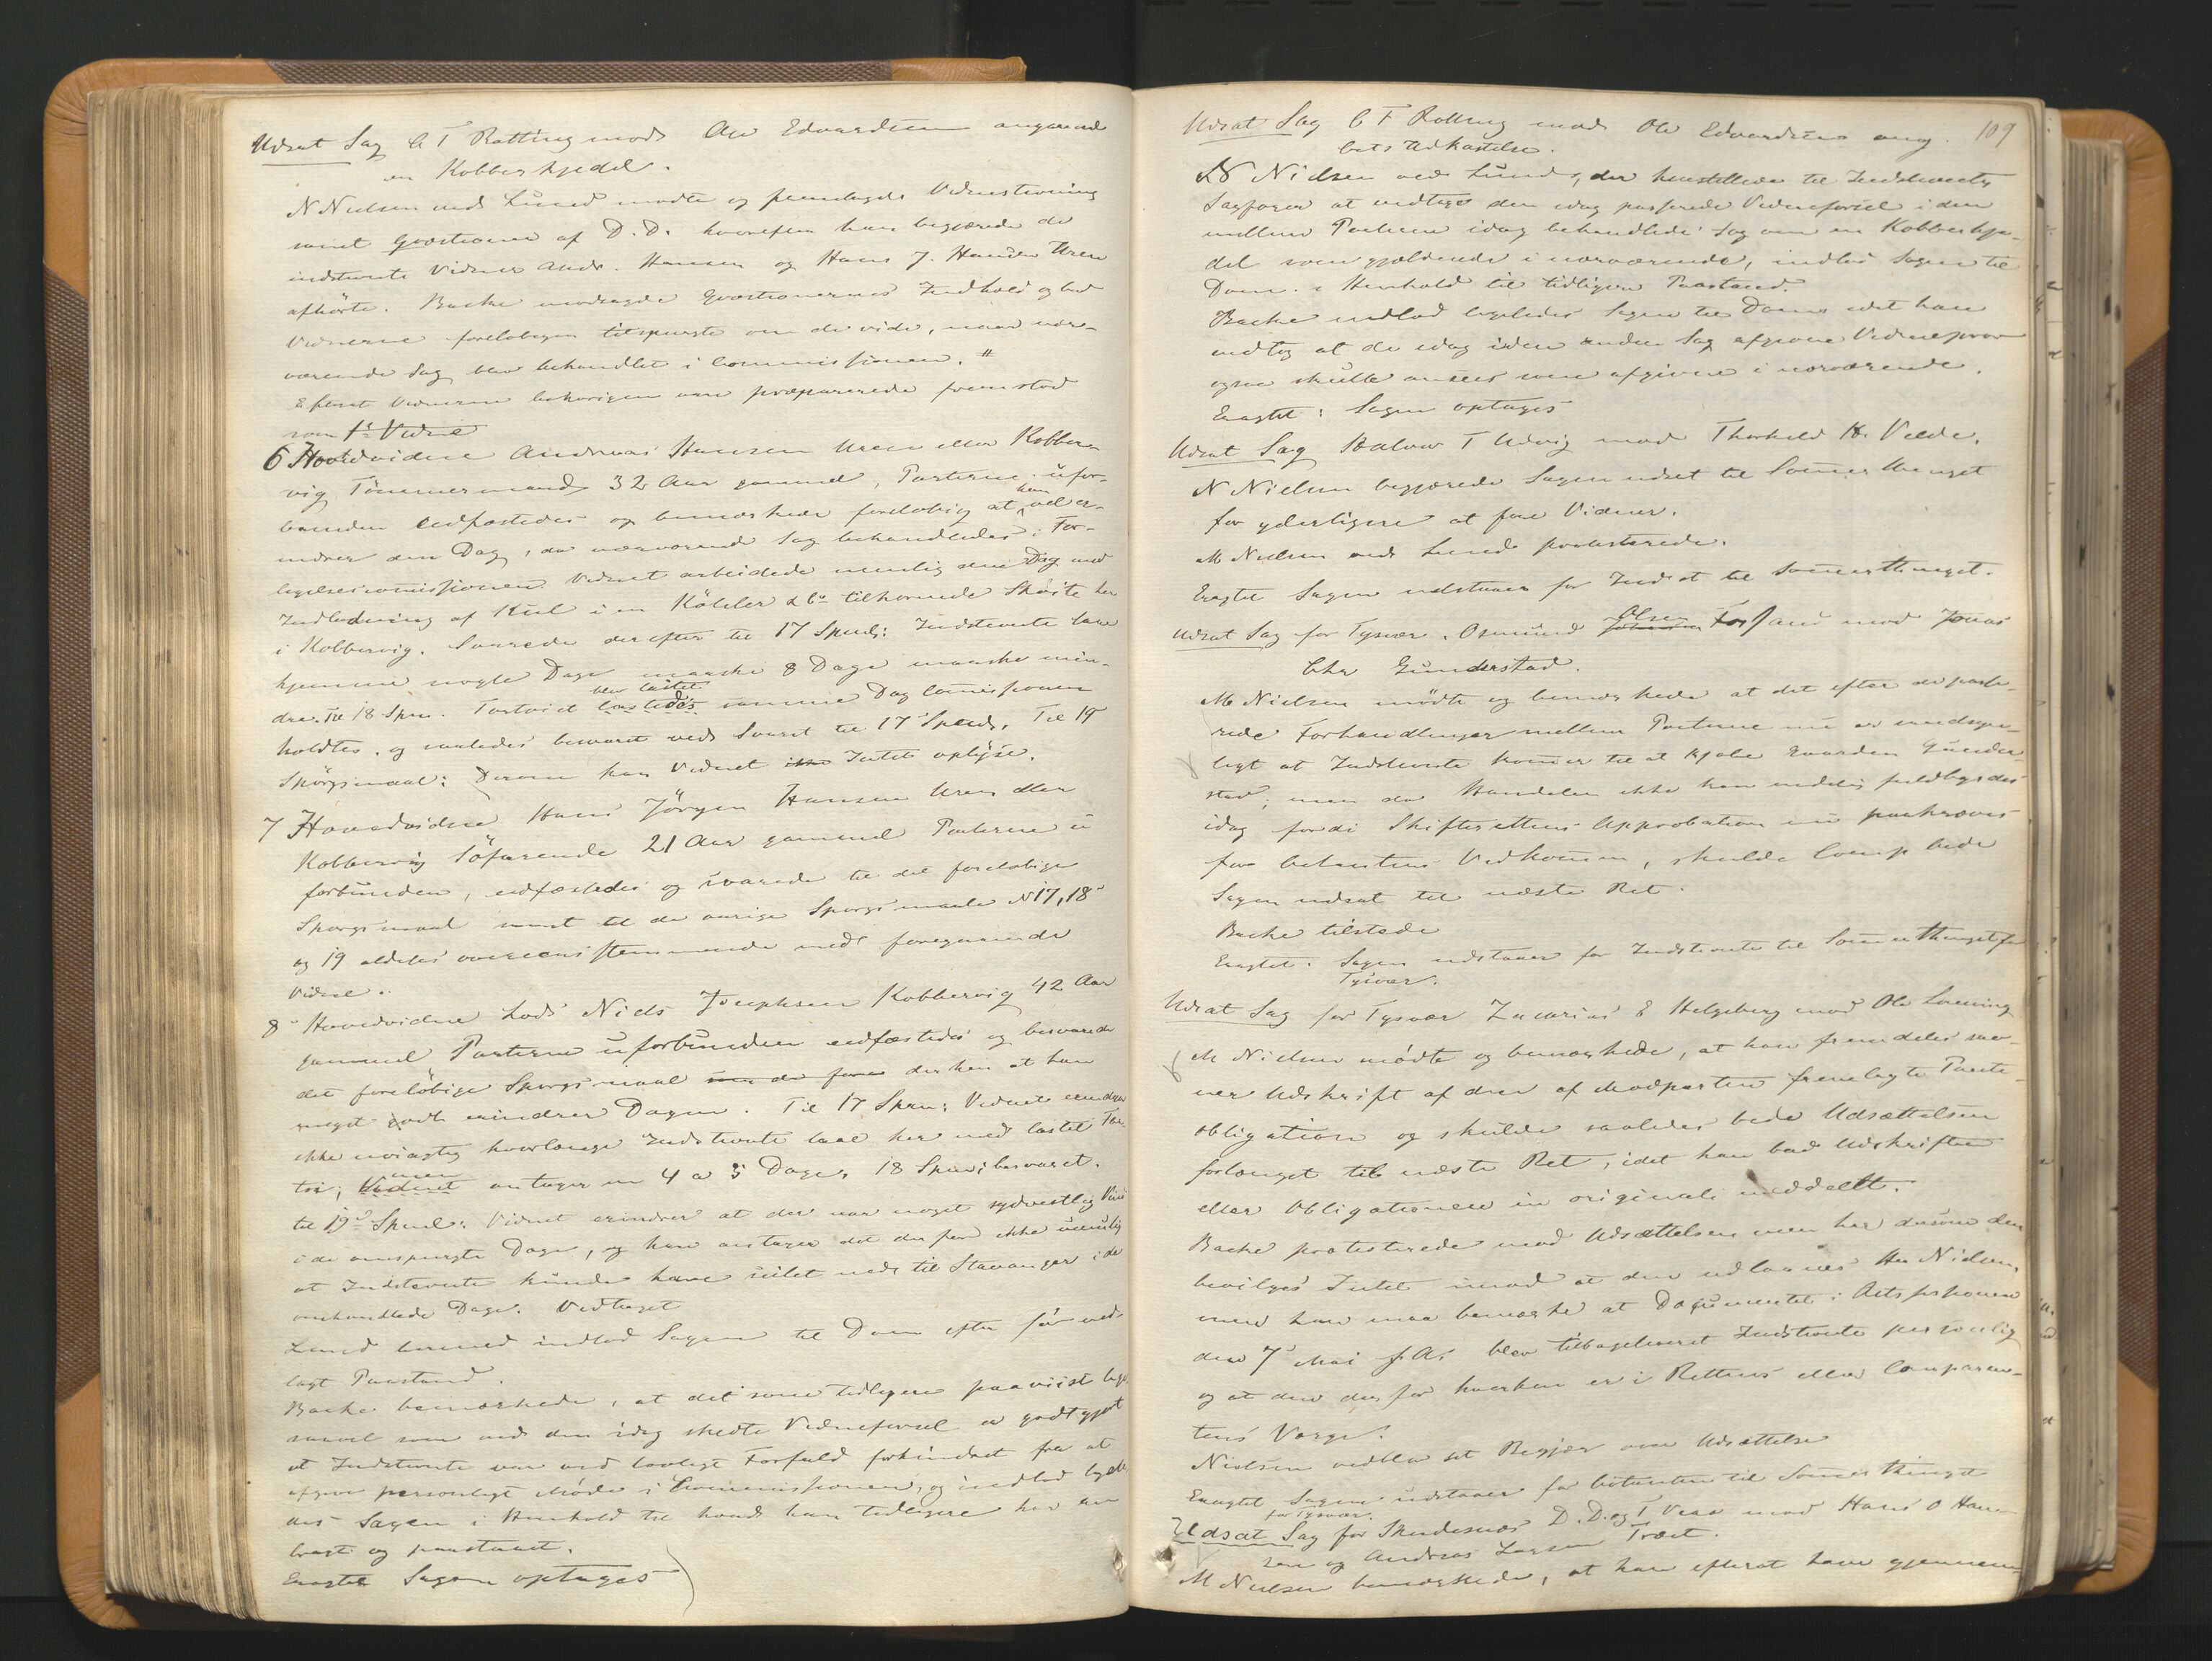 Udsat Sag C T Rotting mod Ole Edvardsen angaaende
en Kobberkjedel.
N Nielsen ved Lund mødte og fremlagde Vidnestevning
samt Qvæstioner af D. D. hvorefter han begjærede de
indstevnte Vidner Andr. Hansen og Hans J. Hansen Uren
afhørte. Backe modsagde Qvæstionernes Indhold og bad
Vidnerne foreløbigen tilspurgte om de vide, naar nær-
værende Sag blev behandlet i Commissionen. #
Efterat Vidnerne behørigen vare præparerede fremstod
som 1ste Vidne
6 Hovedvidne Andreas Hansen Uren eller Kobber-
vig Tømmermand 32 Aar gammel, Parterne ufor-
bunden edfæstedes og bemærkede foreløbig at han vel er-
indrer den Dag, da nærværende Sag behandledes i For-
ligelsescommissionen Vidnet arbeidede nemlig den Dag med
Indladning af Kul i en Köhler & Co tilhørende Skøite her
i Kobbervig. Svarede derefter til 17 Spml: Indstevnte laae
hjemme nogle Dage maaske 8 Dage maaske min-
dre. Til 18 Spm. Fartøiet lastedes blev lastet samme Dag Comissionen
holdtes. og saaledes besvaret ved Svaret til 17 Spml. Til 19
Spörgsmaal: Derom kan Vidnet ikke Intet oplyse.
7 Hovedvidne Hans Jörgen Hansen Uren eller
Kobbervig Söfarende 21 Aar gammel Parterne u
forbunden, edfæstedes og svarede til det foreløbige
Spørgsmaal samt til de øvrige Spørgsmaale N 17, 18
og 19 aldeles overeensstemmende med foregaaende
Vidne.
8 Hovedvidne Lods Niels Josephsen Kobbervig 42 Aar
gammel Parterne uforbunden edfæstedes og besvarede
det foreløbige Spørgsmaal derhen at han
meget godt erindrer Dagen. Til 17 Spm: Vidnet erindrer
ikke nøiagtig hvorlænge Indstevnte laae her med lastet Far-
tøi; Vidnet men antager en 4 a 5 Dage. 18 Spm: besvaret.
til 19de Spml: Vidnet erindrer at der var noget sydvestlig Vind
i de omspurgte Dage, og han antager det derfor ikke umulig
at Indstevnte kunde have seilet ned til Stavanger i de
omhandlede Dage. Vedtaget
Lund hermed indlod Sagen til Dom efter før ned-
lagt Paastand.
Backe bemærkede, at det som tidligere paaviist lige
saavel som ved den idag skedte Vidneførsel er godtgjort
at Indstevnte var ved lovligt Forfald forhindret fra at
afgive personligt Møde i Commissionen, og indlod ligele-
des Sagen i Henhold til hvad han tidligere har an
bragt og paastaaet.
Eragtet Sagen optages

109
Udsat Sag C F Rotting mod Ole Edvardsen ang.
bets Udkastelse.
N Nielsen ved Lund, der henstillede til Indstevntes
Sagfører at vedtage den idag passerede Vidneførsel i den
mellem Parterne idag behandlede Sag om en Kobberkje-
del som gjældende i nærværende, indlod Sagen til
Dom i Henhold til tidligere Paastand.
Backe indlod ligeledes Sagen til Doms idet han
vedtog at de idag i den anden Sag afgivne Vidneprov
ogsaa skulle ansees som afgivne i nærværende.
Eragtet: Sagen optages
Udsat Sag Halvor T Udvig mod Thorkild H. Velde.
N Nielsen begjærede Sagen udsat til Sommerthinget
for yderligere at føre Vidner.
M Nielsen ved Lund protesterede.
Eragtet Sagen udstaaer for Indst til Sommerthinget.
Udsat Sag for Tysvær. Osmund Olsen Forsand mod Jonas
Chr Gunderstad.
M Nielsen mødte og bemærkede at det efter de passe-
rede Forhandlinger mellem Parterne nu er sandsyn-
ligt at Indstevnte kommer til at kjøbe Gaarden Gunder-
stad; men da Handelen ikke kan endelig fuldbyrdes
idag fordi Skifterettens Approbation nu paakræves
for Citantens Vedkommen, skulde Comp bede
Sagen udsat til næste Ret.
Backe tilstede
Eragtet. Sagen udstaaer for Indstevnte til Sommerthinget for
Tysvær.
Udsat Sag for Tysvær Zacarias E Helgeberg mod Ole Lonning
M Nielsen mødte og bemærkede, at han fremdeles sav-
ner Udskrift af den af Modparten fremlagte Pante-
obligation og skulde saaledes bede Udsættelsen
forlænget til næste Ret, idet han bad Udskriften
eller Obligationen in originali meddeelt.
Backe protesterede mod Udsættelsen men har dersom den
bevilges Intet imod at den udlaanes Hr Nielsen,
men han maa bemærke at Documentet i Actsessionen
den 7 Mai f. A. blev tilbageleveret Indstevnte personlig
og at den derfor hverken er i Rettens eller Comparen-
tens Værge.
Nielsen vedblev sit Begjær om Udsættelse
Eragtet Sagen udstaaer for Citanten til Sommerthinget
for Tysvær.
Udsat Sag for Skudesnæs D. D. og T Vea mod Hans O Han-
sen og Andreas Larsen Træet.
M Nielsen bemærkede, at han efterat have gjennem-